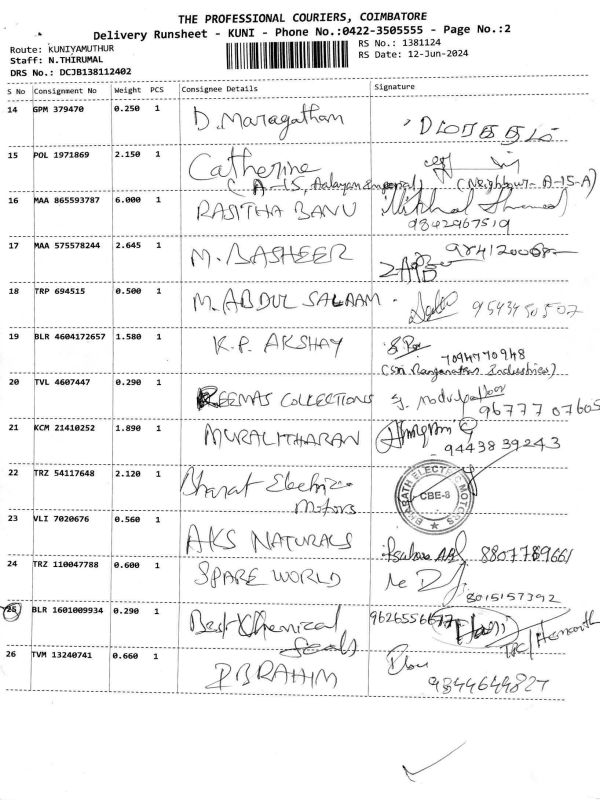 THE PROFESSIONAL COURIERS, COIMBATORE
Delivery Runsheet - KUNI - Phone No.:0422-3505555 - Page No.:2
Route: KUNIYAMUTHUR
RS No.: 1381124
Staff: N.THIRUMAL
RS Date: 12-Jun-2024
DRS No.: DCJB138112402
S No Consignment No Weight PCS Consignee Details Signature
14 GPM 379470 0.250 1 D. Maragatham
15 POL 1971869 2.150 1 Catherine
(A-15, Aalayam Imperial) (Neighbour - A-15-A)
16 MAA 865593787 6.000 1 RASITHA BANU
9842967519
17 MAA 575578244 2.645 1 M. BASHEER
18 TRP 694515 0.500 1 M. ABDUL SALAAM. 9543450507
19 BLR 4604172657 1.580 1 K.P. AKSHAY
7094770948
(Sri Ranganathar Industries)
20 TVL 4607447 0.290 1 REEMAS COLLECTIONS
96777 07605
21 KCM 21410252 1.890 1 MURALITHARAN
9443839243
22 TRZ 54117648 2.120 1 Bharat Electric
Motors
BHARATH ELECTRIC MOTORS
CBE-8
23 VLI 7020676 0.560 1 AKS NATURALS 8807789661
24 TRZ 110047788 0.600 1 SPARE WORLD
8015157392
25 BLR 1601009934 0.290 1 Best Chemical
9626556677
26 TVM 13240741 0.660 1 IBRAHIM
9344644827